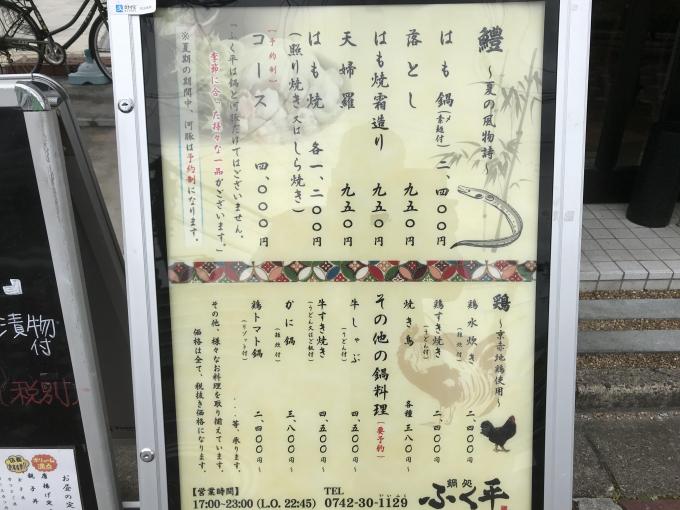 鱧 ~夏の風物詩~
はも鍋(〆素麺付) 二、四〇〇円
落とし 九五〇円
はも焼霜造り 九五〇円
天婦羅 九五〇円
はも焼 各一、二〇〇円
(照り焼き又はしら焼き)
【予約制】
コース 四、〇〇〇円
『ふく平は鍋と河豚だけではございません。
季節に合った様々な一品がございます。』
※夏期の期間中、河豚は予約制になります。
鶏 ~京赤地鶏使用~
鶏水炊き (雑炊付) 二、四〇〇円~
鶏すき焼き (うどん付) 二、四〇〇円~
焼き鳥 各種 三八〇円~
その他の鍋料理【要予約】
牛しゃぶ (うどん付) 四、五〇〇円~
牛すき焼き (うどん又はご飯付) 四、五〇〇円~
かに鍋 (雑炊付) 三、八〇〇円~
鶏トマト鍋 (リゾット付) 二、四〇〇円~
・・等、承ります。
その他、様々なお料理を取り揃えています。
価格は全て、税抜き価格になります。
【営業時間】
17:00~23:00 (L.O. 22:45)
TEL
0742-30-1129
いいふく
鍋処
ふく平
漬物付
(税別)
お昼の定
唐揚げ定
親子丼